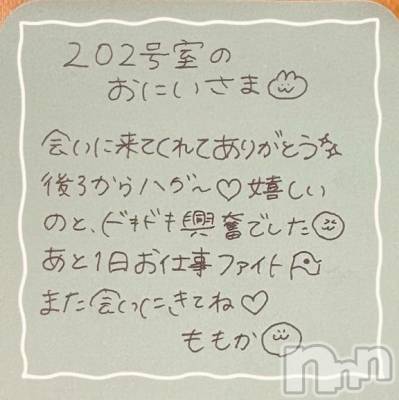 202号室の
おにいさま
会いに来てくれてありがとう
後ろからハグ〜♡嬉しい
のと、ドキドキ興奮でした
あと1日お仕事ファイト
また会いにきてね♡
ももか